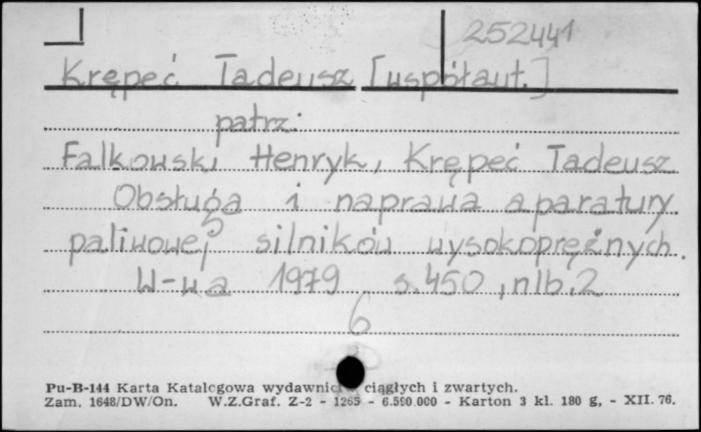 252441
Krępeć Tadeusz [współaut.]
patrz:
Falkowski Henryk, Krępeć Tadeusz
Obsługa i naprawa aparatury
paliwowej silników wysokoprężnych.
W-wa 1979 s. 450, nlb. 2
6
Pu-B-144 Karta Katalogowa wydawnictw ciągłych i zwartych.
Zam. 1648/DW/On. W.Z.Graf. Z-2 - 1265 - 6.590.000 - Karton 3 kl. 180 g, - XII. 76.